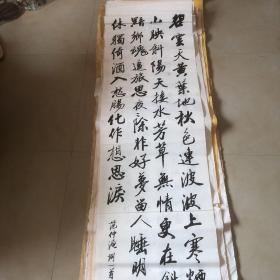 碧雲天黄葉地秋色連波波上寒煙
山映斜陽天接水芳草無情更在斜
黯鄉魂追旅思夜除非好夢留人睡明
休獨倚酒入愁腸化作想思淚
范仲淹詞一首